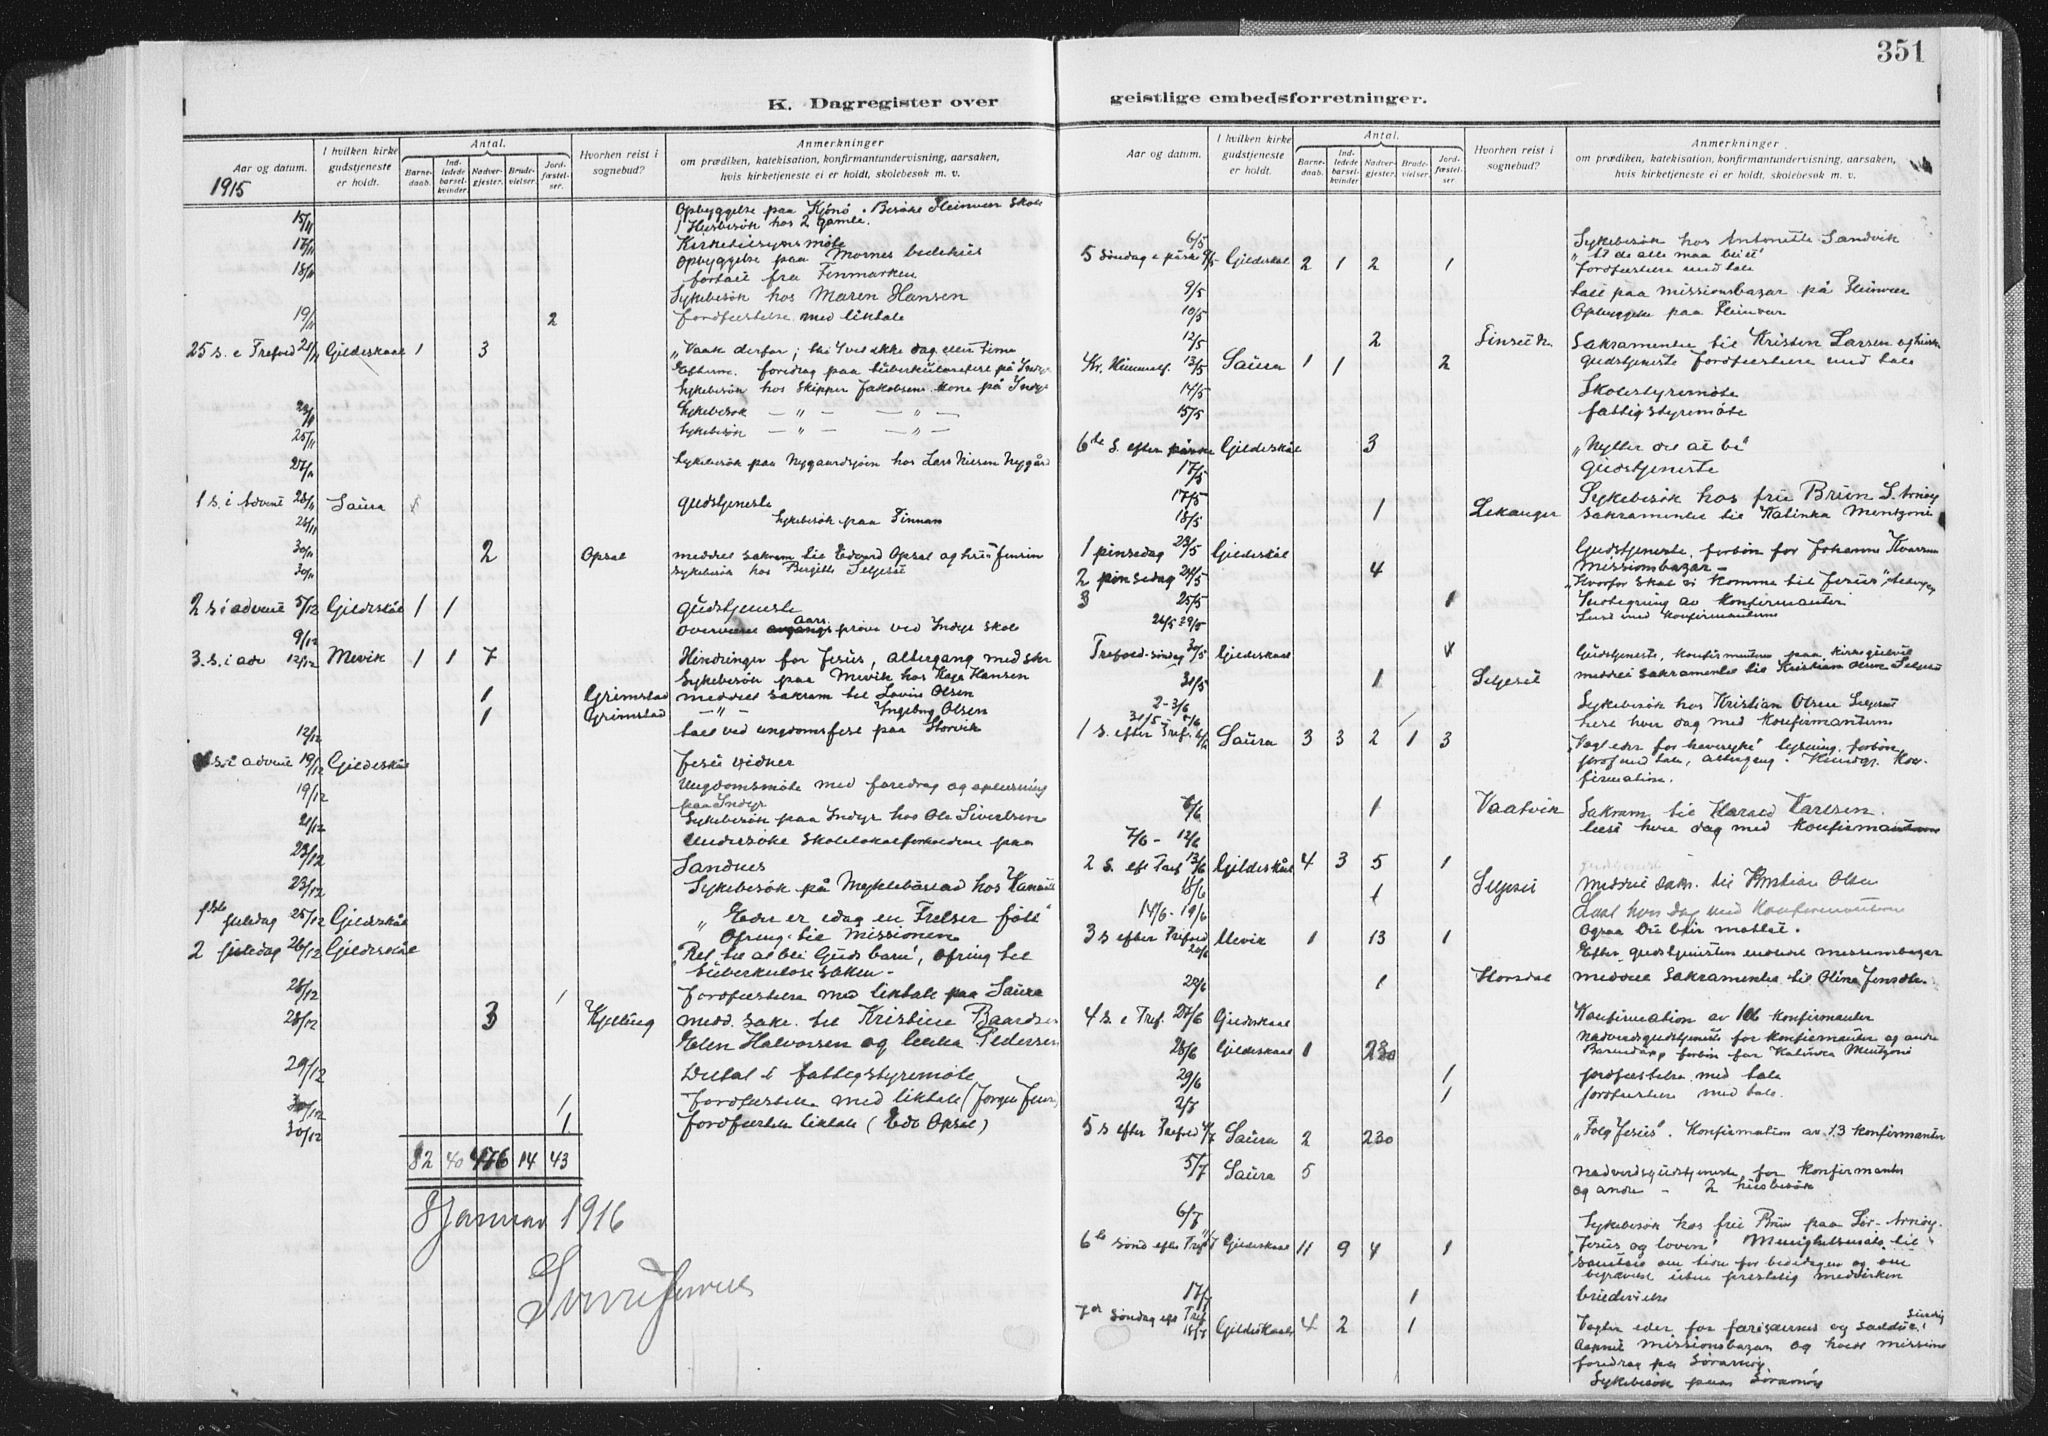 351
K. Dagregister over geistlige embedsforretninger.
Aar og datum.
I hvilken kirke gudstjeneste er holdt.
Antal.
Barnedaab.
Indledede barselkvinder
Nadvergjester.
Brudevielser.
Jordfæstelser.
Hvorhen reist i sognebud?
Anmerkninger
om prædiken, katekisation, konfirmantundervisning, aarsaken,
hvis kirketjeneste ei er holdt, skolebesøk m. v.
1915
15/11 Opbyggelse paa Kjönö. Besøke Fleinvær Skole
Husbesök hos 2 gamle.
17/11 Kirketilsynsmöte
18/11 Opbyggelse paa Mornes bedehus
fortalt fra Finmarken
Sykebesök hos Maren Hansen
19/11 2 Jordfæstelse med liktale
25 s. e Trefold 21/11 Gildeskaal 1 3 "Vaak derfor; thi I vet ikke dag eller time
Efterm. foredrag paa tuberkulosefest på Indyr
Sykebesök hos Skipper Jakobsens kone på Indyr
23/11 Sykebesök — " — — " —
25/11 Sykebesök — " — — " —
27/11 Sykebesök paa Nygaardsjöen hos Lars Nilsen Nygård
1 s. i Advent 28/11 Saura gudstjeneste
Sykebesök paa Finnan
30/11 2 Opsal meddel sakram til Edvard Opsal og hustru
30/11 Sykebesök hos Bergitte Seljeset
2 s i advent 5/12 Gildeskål 1 1 gudstjeneste
9/12 Overvære aars pröve ved Indyr skole
3. s. i adv 12/12 Mevik 1 1 7 Hindringer for Jesus, altergang med skr
Sykebesök paa Mevik hos Kaja Hansen
1 Grimstad meddel sakram til Lovise Olsen
1 Grimstad — " — Ingeborg Olsen
12/12 tale ved ungdomsfest paa Storvik
s. i advent 19/12 Gildeskål Jesu vidner
19/12 Ungdomsmöte med foredrag og oplæsning
paa Indyr
21/12 Sykebesök paa Indyr hos Ole Sivertsen
23/12 Undersöke skolelokalforholdene paa
Sandnes
23/12 Sykebesök på Myklebustad hos
1ste juledag 25/12 Gildeskål "Eder er idag en Frelser födt"
Ofring til Missionen
2 juledag 26/12 Gildeskål "Ret til at bli Guds barn", Ofring til
tuberkulosesaken -
28/12 1 Jordfæstelse med liktale paa Saura
28/12 3 Kjelling medd. sakr. til Kristine Baardsen
Elen Halvorsen og Pedersen
29/12 Deltat i fattigstyremöte
30/12 1 Jordfæstelse med liktale (Jörgen Jens
30/12 1 Jordfæstelse liktale (Edv Opsal)
82 40 476 14 43
8 Januar 1916
Aar og datum.
I hvilken kirke gudstjeneste er holdt.
Antal.
Barnedaab.
Indledede barselkvinder
Nadvergjester.
Brudevielser.
Jordfæstelser.
Hvorhen reist i sognebud?
Anmerkninger
om prædiken, katekisation, konfirmantundervisning, aarsaken,
hvis kirketjeneste ei er holdt, skolebesøk m. v.
6/5 Sykebesök hos Antonette Sandvik
5 Söndag e påske 9/5 Gildeskål 2 1 2 1 "at de alle maa bli et"
Jordfæstelse med tale
9/5 tale paa missionsbazar på Fleinvær
10/5 Opbyggelse paa Fleinvær
12/5 2 Finset Sakramentet til Kristen Larsen og hustru
Kr. Himmelf. 13/5 Saura 1 1 2 gudstjeneste Jordfæstelse med tale
14/5 Skolestyremöte
15/5 fattigstyremöte
6te S. efter påske Gildeskål 3 "Nytter det at be"
17/5 gudstjeneste
17/5 Sykebesök hos fru Brun S. Arnöy
18/5 1 Lekanger Sakramentet til Kalinka Mentzoni
1 pinsedag 23/5 Gildeskål Gudstjeneste, forbön for Johanne
Missionsbazar -
2 pinsedag 24/5 4 "Hvorfor skal vi komme til Jesus", altergang
3 25/5 1 Indtegning av konfirmanter
26/5 29/5 Læst med konfirmanterne
Trefold-söndag 30/5 Gildeskaal Gudstjeneste, konfirmanterne paa kirkegulvet
31/5 1 Seljeset meddel sakramentet til Kristian Olsen Seljeset
2 - 3/6 Sykebesök hos Kristian Olsen Seljeset
31/5 - 5/6 lese hver dag med konfirmanterne
1 s. efter Tref. 6/6 Saura 3 3 2 1 3 "Vogt eder for havesyke" lysning, forbön
jordf med tale, altergang. Kundgj. Konfirmation.
6/6 1 Vaatvik Sakram. til Harald Karlsen.
7/6 - 12/6 læst hver dag med konfirmanterne
2 s. eft Tref 13/6 Gildeskål 4 3 5 1 gudstjeneste
15/6 1 Seljeset meddel sakr. til Kristian Olsen
14/6 - 19/6 Læst hver dag med konfirmanterne
3 s efter Trefold 20/6 Mevik 1 13 1 Ogsaa du blir mottat.
Efter gudstjenesten missionsbazar
22/6 1 Storsdal meddel sakramentet til Oline Jensdtr.
4 s. e Tref. 27/6 Gildeskaal Konfirmation av konfirmanter
28/6 Gildeskaal 1 230 Nadverdgudstjeneste for konfirmanter og andre
Barnedaap forbön for Kalinka Mentzoni
29/6 1 Jordfæstelse med tale
2/7 1 Jordfæstelse med tale.
5 s efter Trefold 4/7 Saura 2 230 "Fölg Jesus". Konfirmation av 13 konfirmanter
5/7 Saura 5 Nadverdgudstjeneste for konfirmanter
og andre - 2 husbesök
6/7 Sykebesök hos fru Brun paa Sör-Arnöy.
6te sönd efter Tref 11/7 Gildeskaal 11 9 4 1 "Jesus og loven". Menighetsmöte til
samtale om loven for bededagen og om
begravelse uten prestelig medvirken
17/7 1 brudevielse
7de söndag eft Tref 18/7 Gildeskaal 4 2 1 Vogter eder for farisæernes og saddukæernes surdeig
Aapnet missionsbazar og holdt missions
foredrag paa Sörarnöy
Sykebesök paa Sörarnöy